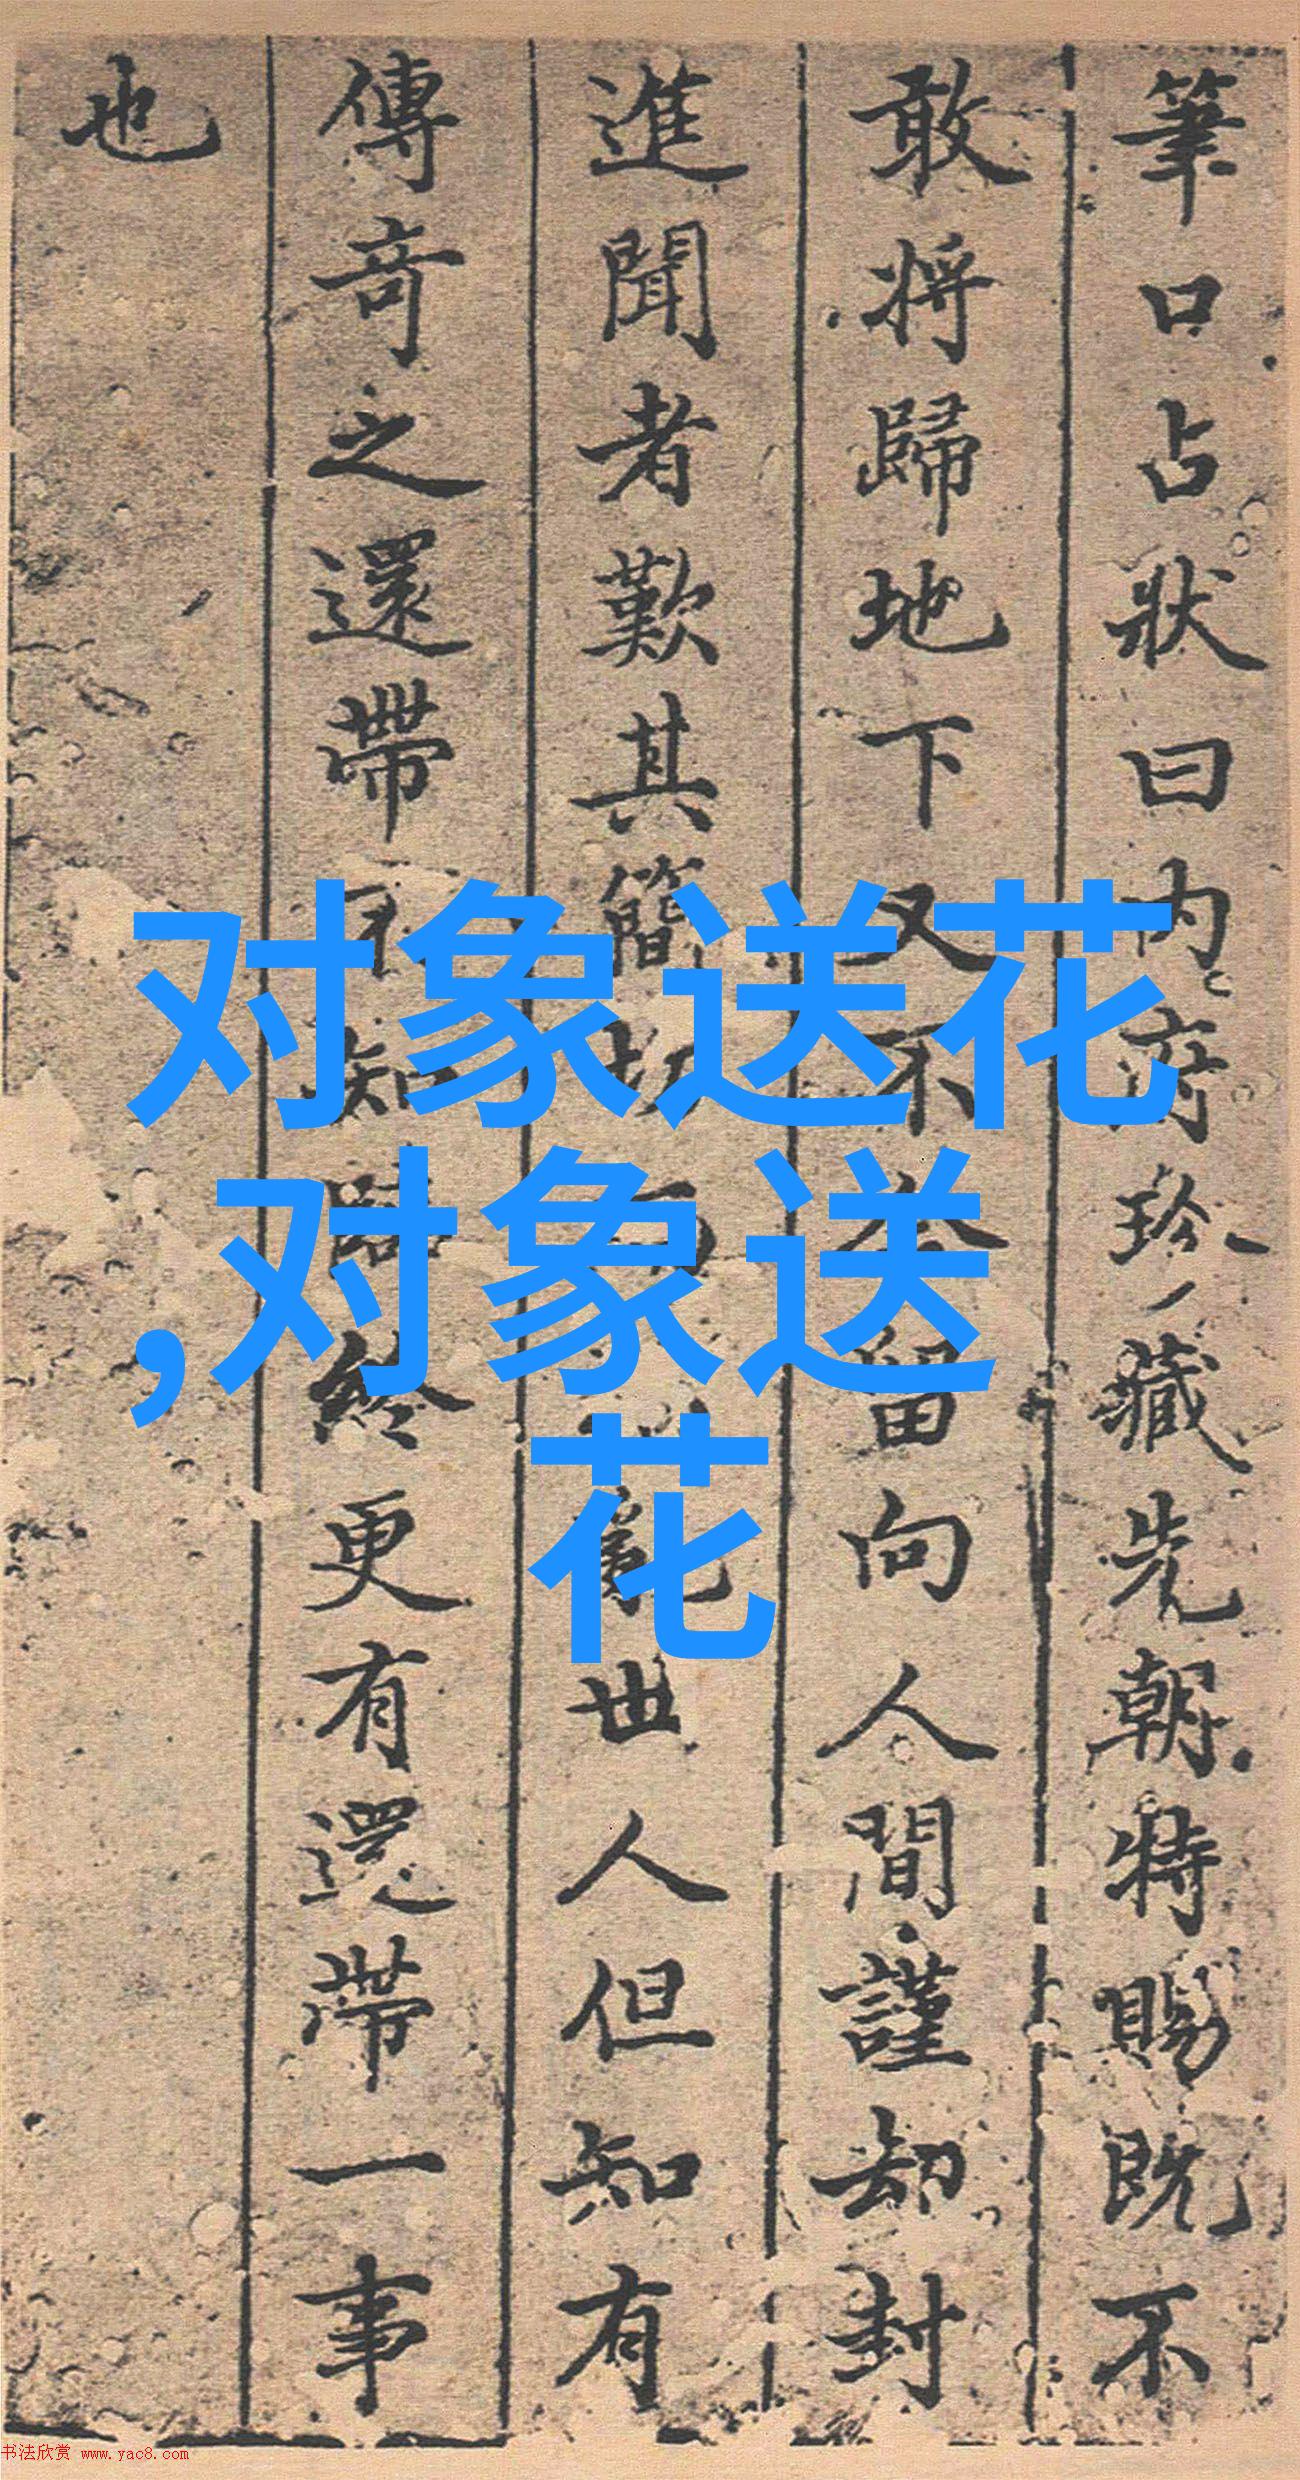 筆口占狀曰內府珍藏先朝特賜既不
敢將歸地下又不留向人間謹却封
進聞者歎其簡世人但知有
傳奇之還帶不知臨終更有還帶一事
也
对象送花
,对象送
花
书法欣赏 www.yac8.com